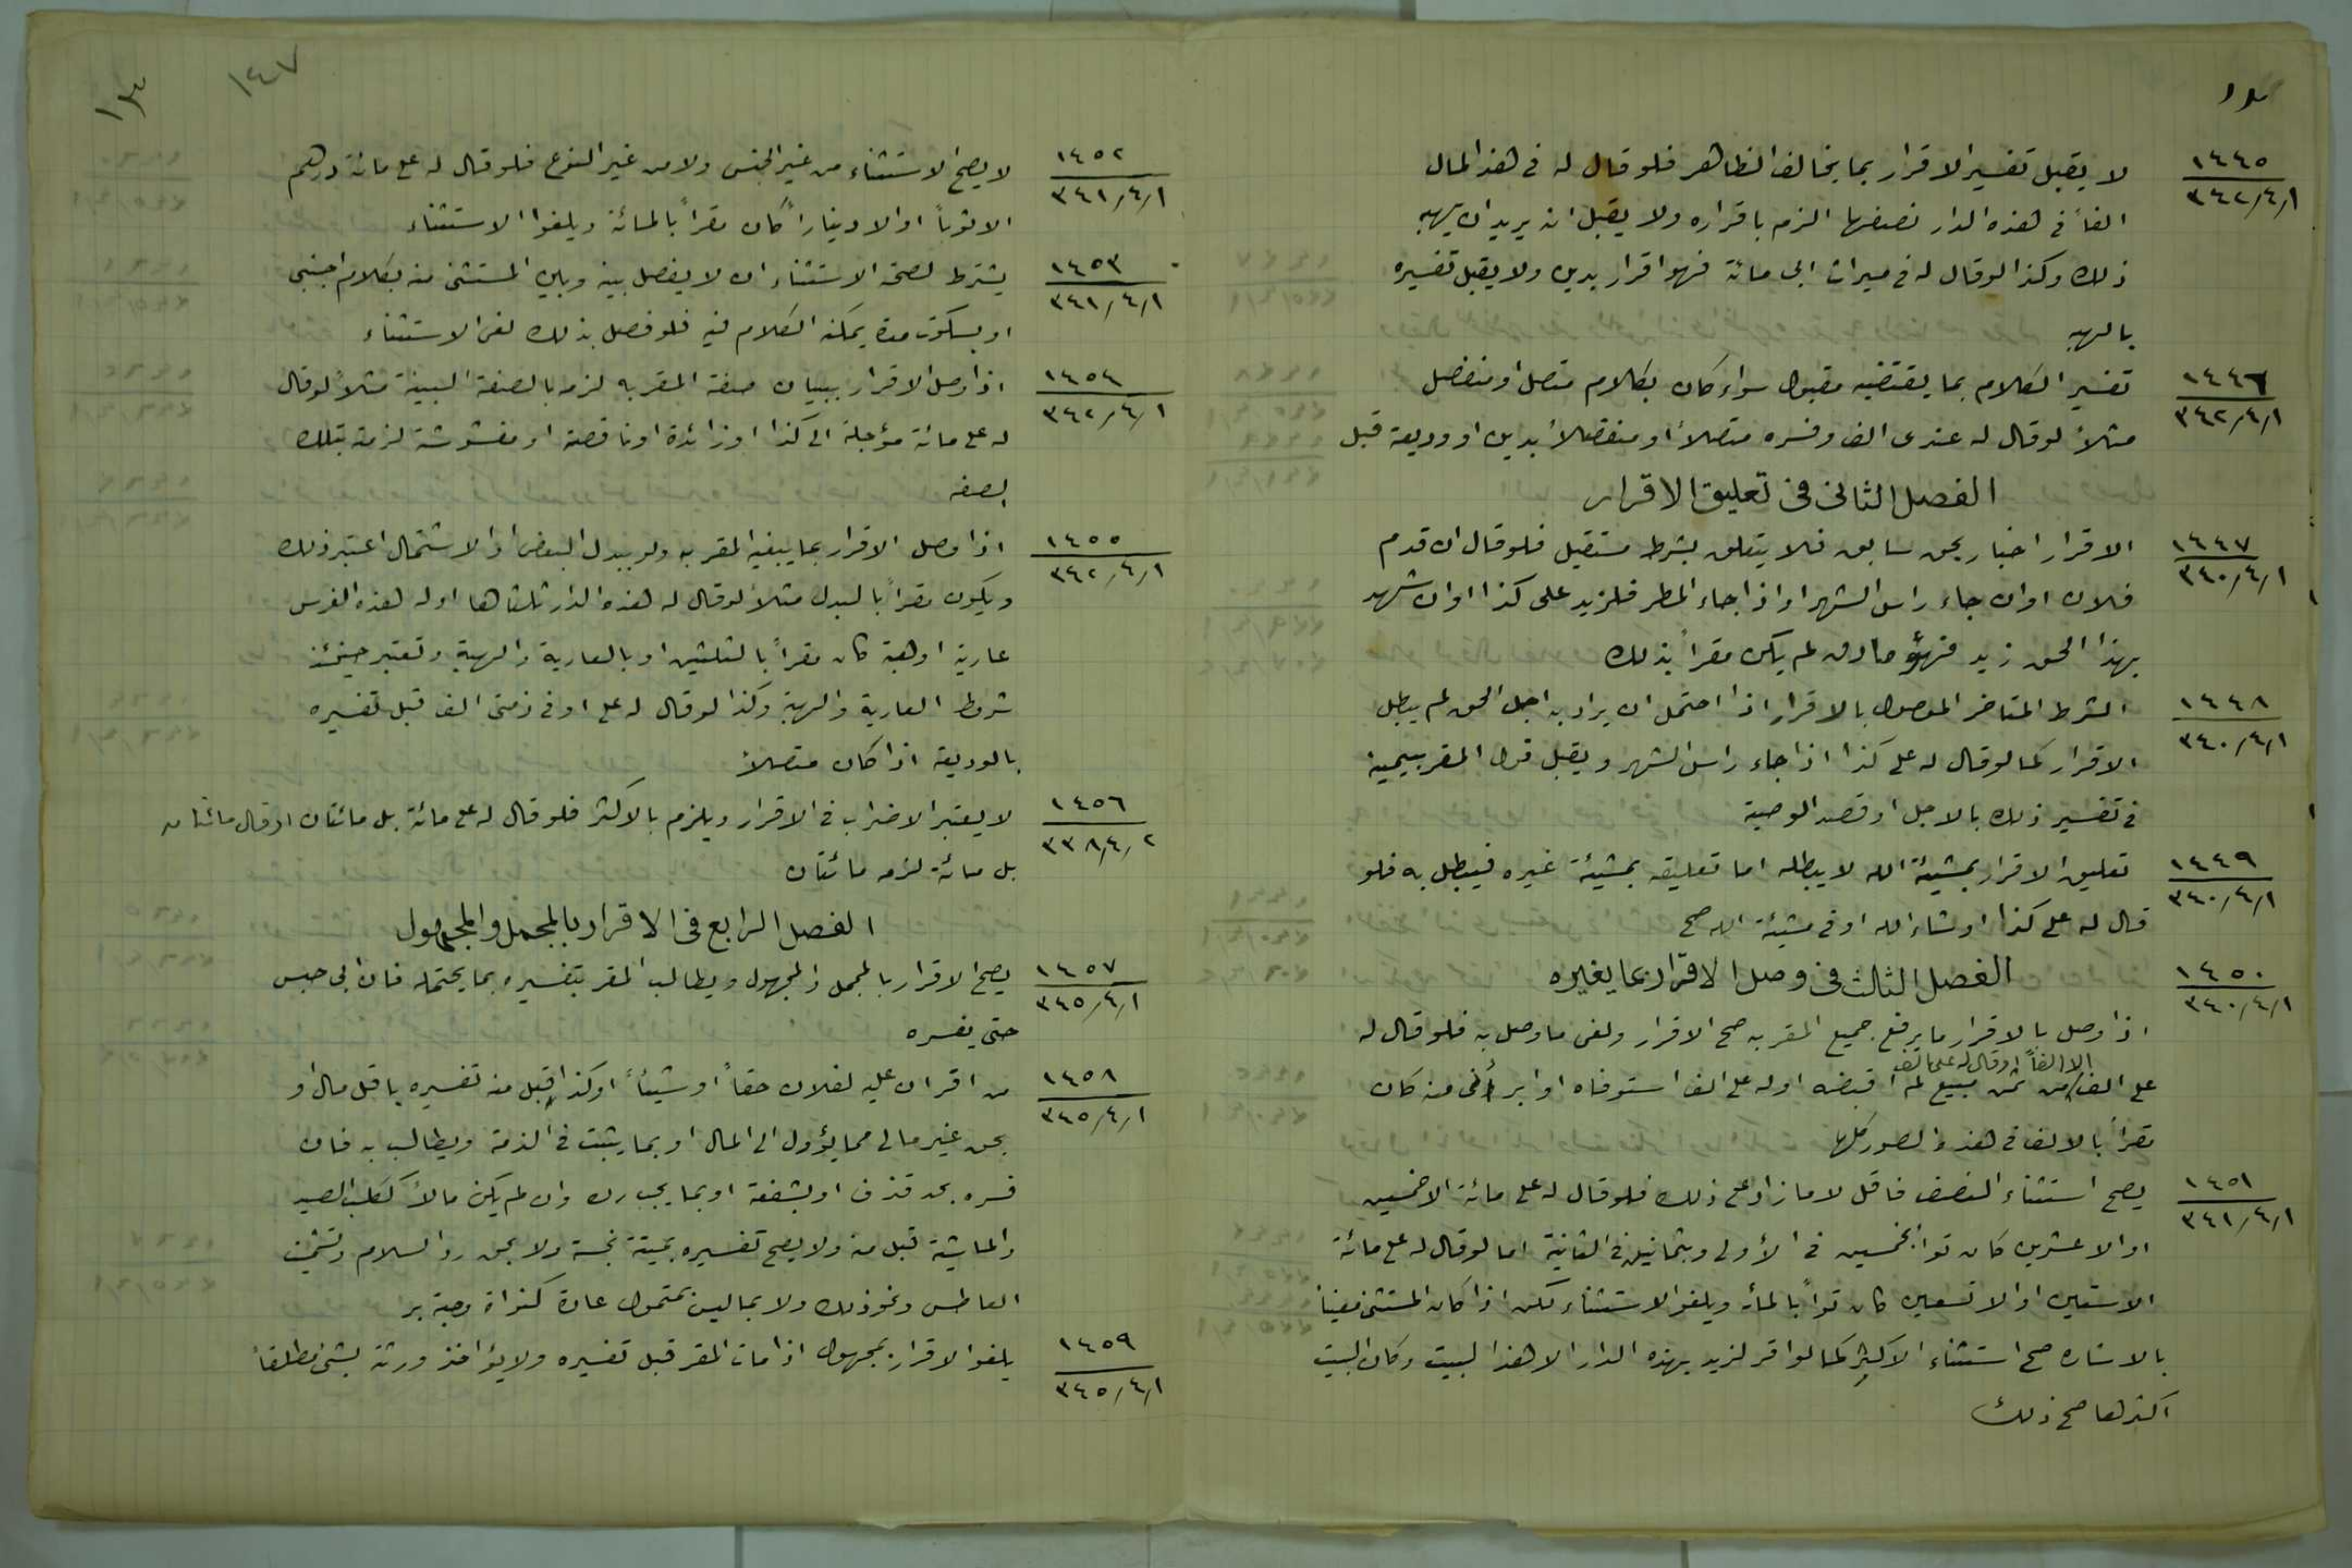 ١٤٤٥
٣٤٢/٤/١
لا يقبل تفسير الاقرار بما يخالف الظاهر فلو قال له في هذا المال
الفاً في هذه الدار نصفها الزم باقراره ولا يقبل انه يريد ان يهبه
ذلك وكذا لو قال له في ميراث ابي مائة فهو اقرار بدين ولا يقبل تفسيره
بالهبه
١٤٤٦
٣٤٢/٤/١
تفسير الكلام بما يقتضيه مقبول سواء كان بكلام متصل او منفصل
مثلاً لو قال له عندي الف وفسره متصلاً او منفصلاً بدين او وديعة قبل
الفصل الثاني في تعليق الاقرار
١٤٤٧
٣٤٠/٤/١
الاقرار اخبار بحق سابق فلا يتعلق بشرط مستقبل فلو قال ان قدم
فلان او ان جاء راس الشهر او اذا جاء المطر فلزيد على كذا او ان شهد
بهذا الحق زيد فهو صادق لم يكن مقراً بذلك
١٤٤٨
٣٤٠/٤/١
الشرط المتاخر الموصول بالاقرار اذا احتمل ان يراد به اجل الحق لم يبطل
الاقرار كما لو قال له علي كذا اذا جاء راس الشهر ويقبل قول المقر بيمينه
في تفسير ذلك بالاجل او قصد الوصية
١٤٤٩
٣٤٠/٤/١
تعليق الاقرار بمشيئة الله لا يبطله اما تعليقه بمشيئة غيره فيبطل به فلو
قال له علي كذا ان شاء الله او في مشيئة الله صح
الفصل الثالث في وصل الاقرار بما يغيره
١٤٥٠
٣٤٠/٤/١
اذا وصل بالاقرار ما يرفع جميع المقر به صح الاقرار ولغى ما وصل به فلو قال له
الا الفاً او قال له علي الف
علي الف من ثمن مبيع لم اقبضه او له علي الف استوفاه او ابرأني منه كان
مقراً بالالف في هذه الصور كلها
١٤٥١
٣٤١/٤/١
يصح استثناء النصف فاقل لا ما زاد على ذلك فلو قال له علي مائة الا خمسين
او الا عشرين كان مقراً بخمسين في الأولى وبثمانين في الثانية اما لو قال له علي مائة
الا ستين او الا تسعين كان مقراً بالمأة ويلغو الاستثناء لكن اذا كان المستثنى معيناً
بالاشاره صح استثناء الاكثر كما لو اقر لزيد بهذه الدار الا هذا البيت وكان البيت
اكثرها صح ذلك
١٤٧
١٤٥٢
٣٤١/٤/١
لا يصح الاستثناء من غير الجنس ولا من غير النوع فلو قال له علي مائة درهم
الا ثوباً او الا ديناراً كان مقراً بالمائة ويلغوا الاستثناء
١٤٥٣
٣٤١/٤/١
يشترط لصحة الاستثناء ان لا يفصل بينه وبين المستثنى منه بكلام اجنبي
او بسكوت مدة يمكنه الكلام فيه فلو فصل بذلك لغى الاستثناء
١٤٥٤
٣٤٢/٤/١
اذا وصل الاقرار ببيان صفة المقر به لزمه بالصفة المبينة مثلاً لو قال
له علي مائة مؤجلة الى كذا او زائدة او ناقصة او مغشوشة لزمته بتلك
الصفه
١٤٥٥
٣٤٢/٤/١
اذا وصل الاقرار بما يغير المقر به ولو ببدل البعض او الاشتمال اعتبر ذلك
ويكون مقراً بالبدل مثلاً لو قال له هذه الدار ثلثاها او له هذه الفرس
عارية او هبة كان مقراً بالثلثين او بالعارية والهبة وتعتبر حينئذ
شروط العارية والهبة وكذا لو قال له علي او في ذمتي الف قبل تفسيره
بالوديعة اذا كان متصلاً
١٤٥٦
٣٣٨/٤/٢
لا يعتبر الاضراب في الاقرار ويلزم بالاكثر فلو قال له علي مائة بل مائتان او قال مائتان
بل مائة لزمه مائتان
الفصل الرابع في الاقرار بالمجمل والمجهول
١٤٥٧
٣٤٥/٤/١
يصح الاقرار بالمجمل والمجهول ويطالب المقر بتفسيره بما يحتمله فان ابى حبس
حتى يفسره
١٤٥٨
٣٤٥/٤/١
من اقر ان عليه لفلان حقاً او شيئاً او كذا قبل منه تفسيره باقل مال او
بحق غير مالي مما يؤول الى المال او بما يثبت في الذمة ويطالب به فان
فسره بحد قذف او بشفعة او بما يجب رده وان لم يكن مالاً ككلب الصيد
والماشية قبل منه ولا يصح تفسيره بميتة نجسة ولا بحق رد السلام وتشميت
العاطس ونحو ذلك ولا بما ليس بمتمول عادة كنواة وحبة بر
١٤٥٩
٣٤٥/٤/١
يلغوا الاقرار بمجهول اذا مات المقر قبل تفسيره ولا يؤاخذ ورثته بشئ مطلقاً